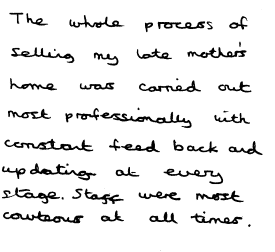 The whole process of
selling my late mother's
home was carried out
most professionally with
constant feed back and
updating at every
stage. Staff were most
courteous at all times.